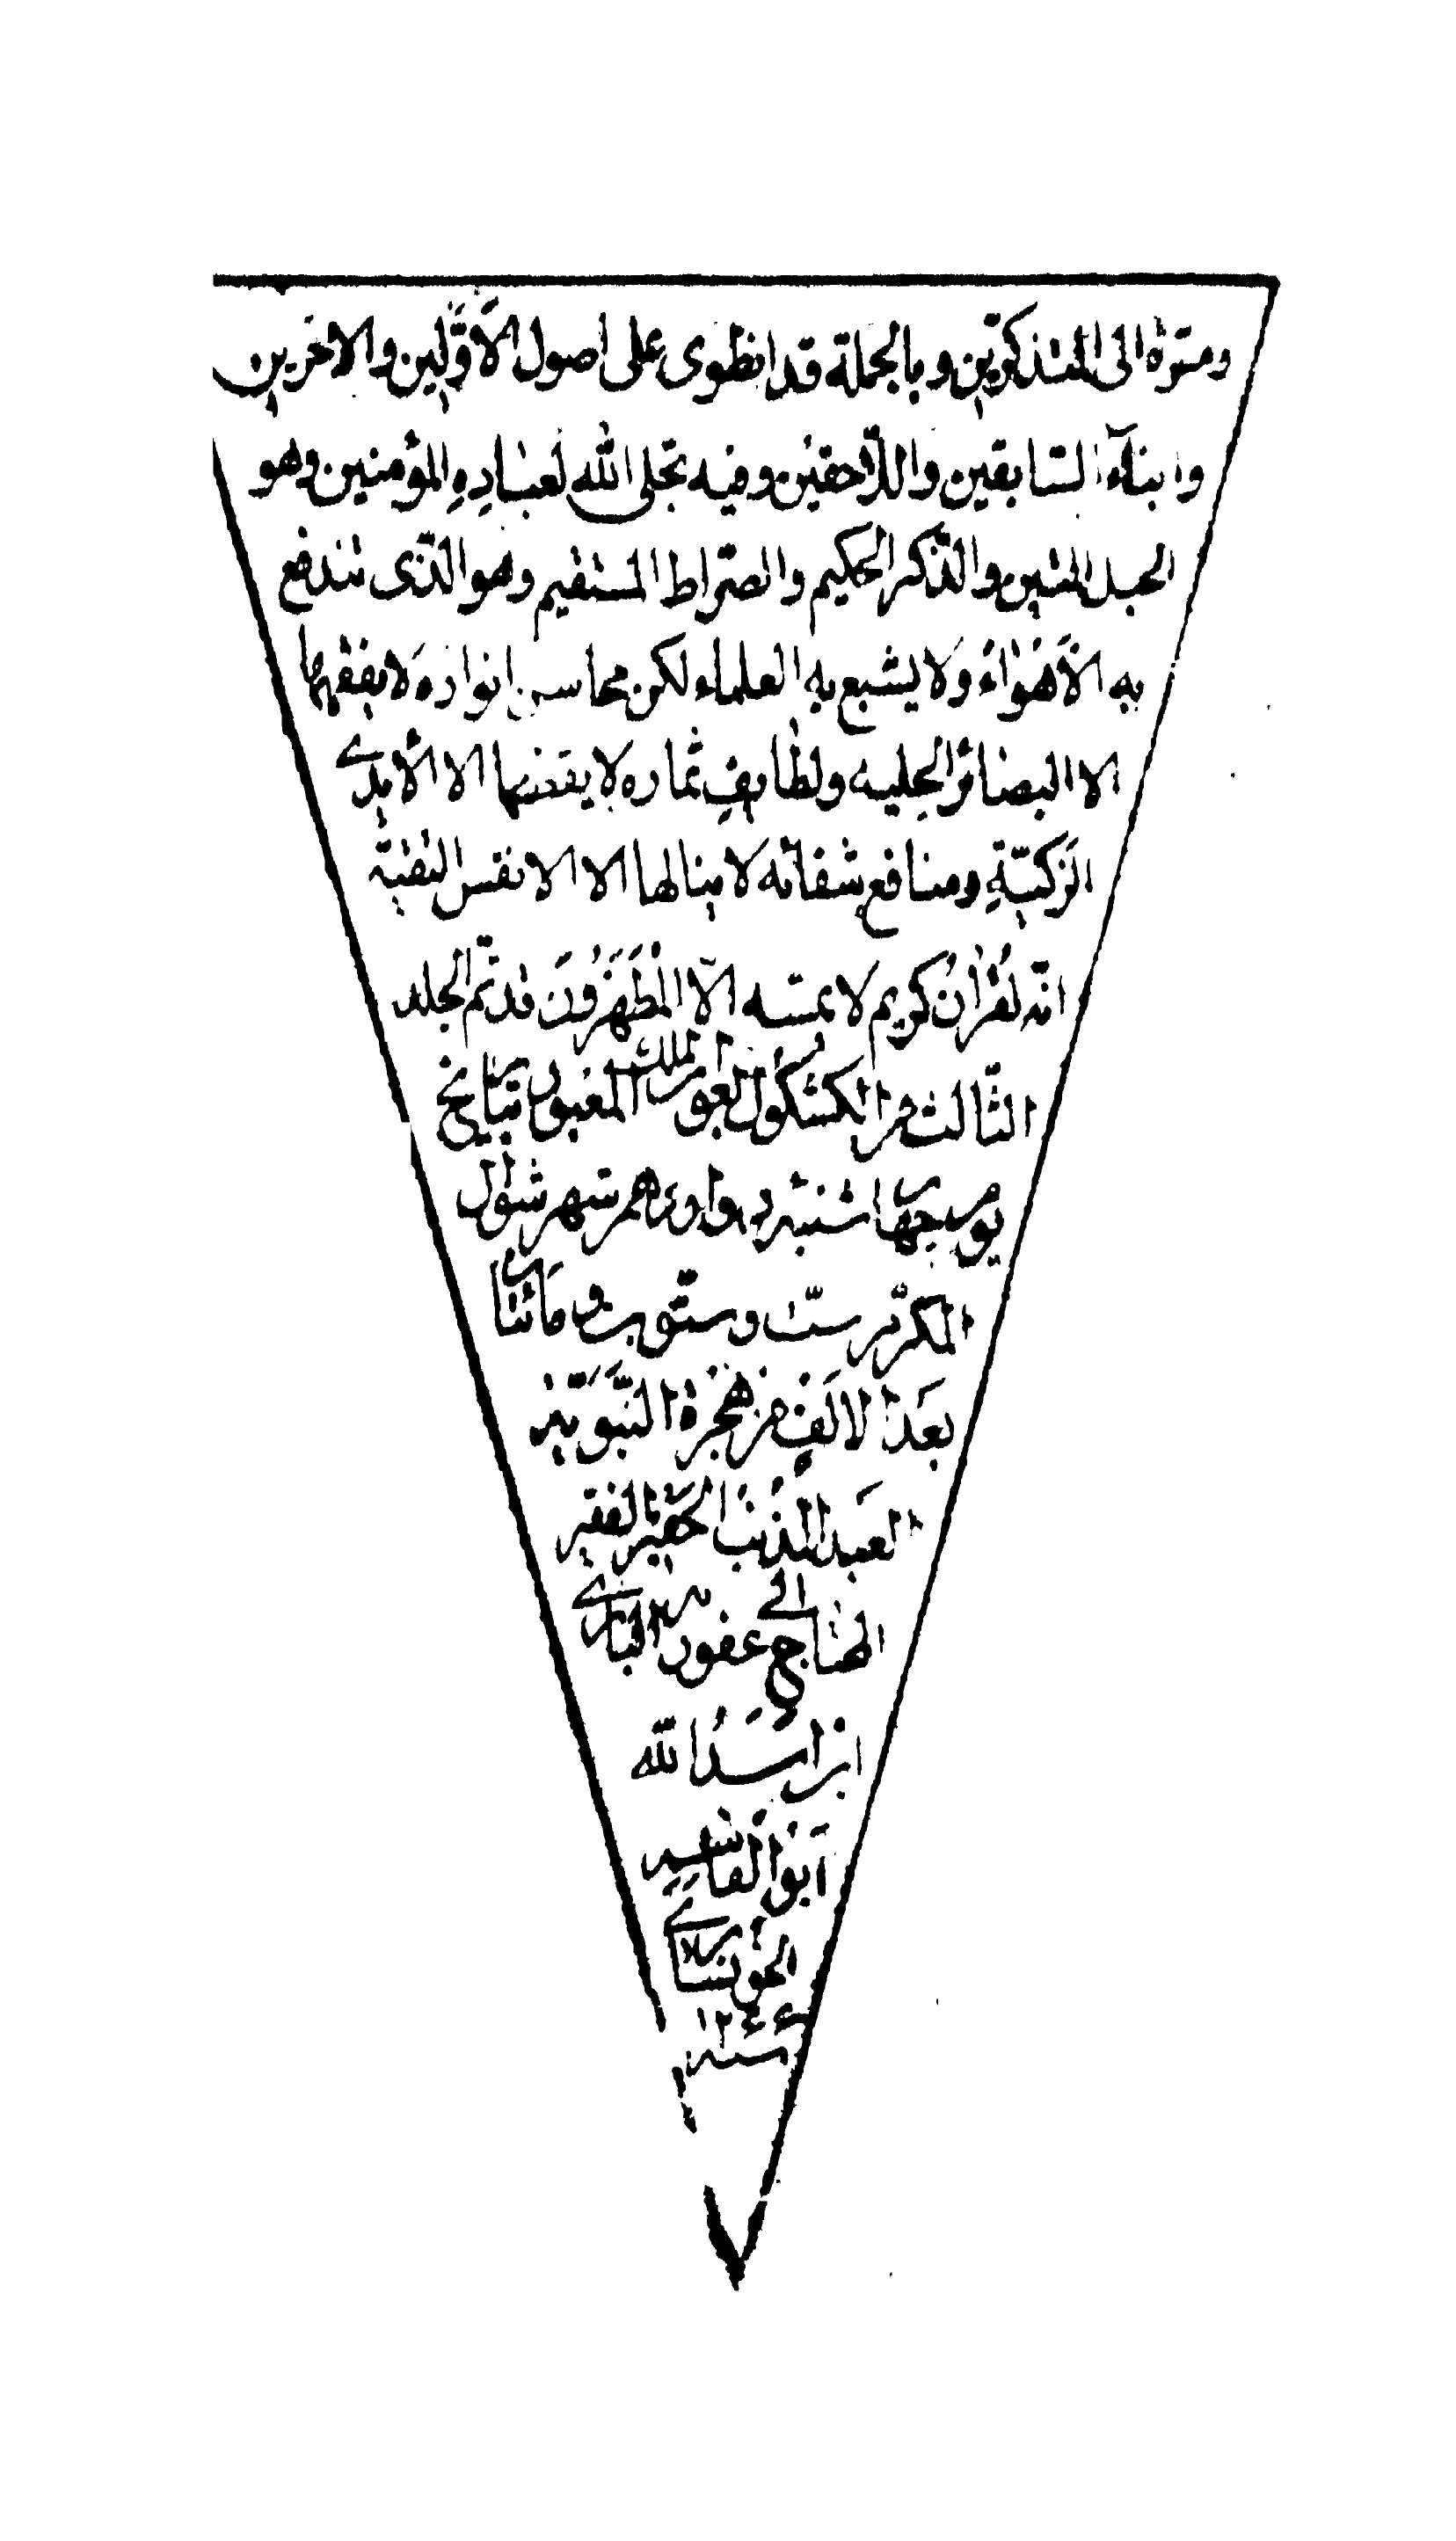 ومترة الى المتذكرين وبالجملة قد انطوى على اصول الأوّلين والاخرين
وابناۤء السّابقين واللّاحقين وفيه تجلى الله لعبادِهِ المؤمنين وهو
الحبل المتين والذّكر الحكيم والصّراط المستقيم وهو الذّى تندفع
به الأهْوٰاءُ وَلا يشبع به العلماء لكن محاسن انواره لا يفقهها
الا البصائر الجليه ولطايفِ ثماره لا يقضيها الا الأيدى
الزّكيّةِ ومنافع شفائه لا ينالها الا الانفس التقيّة
انّه لقُرْانٌ كريم لا يمسّه الّا المُطَهَّرُونَ قد تمّ الجلد
الثّالث من الكشكول لعون الملك المعبود بتاريخ
يوم چهار شنبه دوازدهم شهر شوال
المكرّم ستّ وستّون و مائتان
بَعدَ الالَفِ من هجرة النّبَوَيّة
العَبد المذنب الحَقير الفقير
المحتاج الى عفو ربه البارى
ابن اسَدُ الله
اَبوُ القاسم
الخونسارى
سنه ١٢٦٦